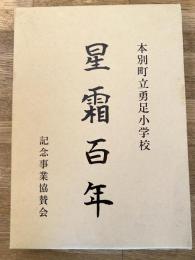 本別町立勇足小学校
星霜百年
記念事業協賛会